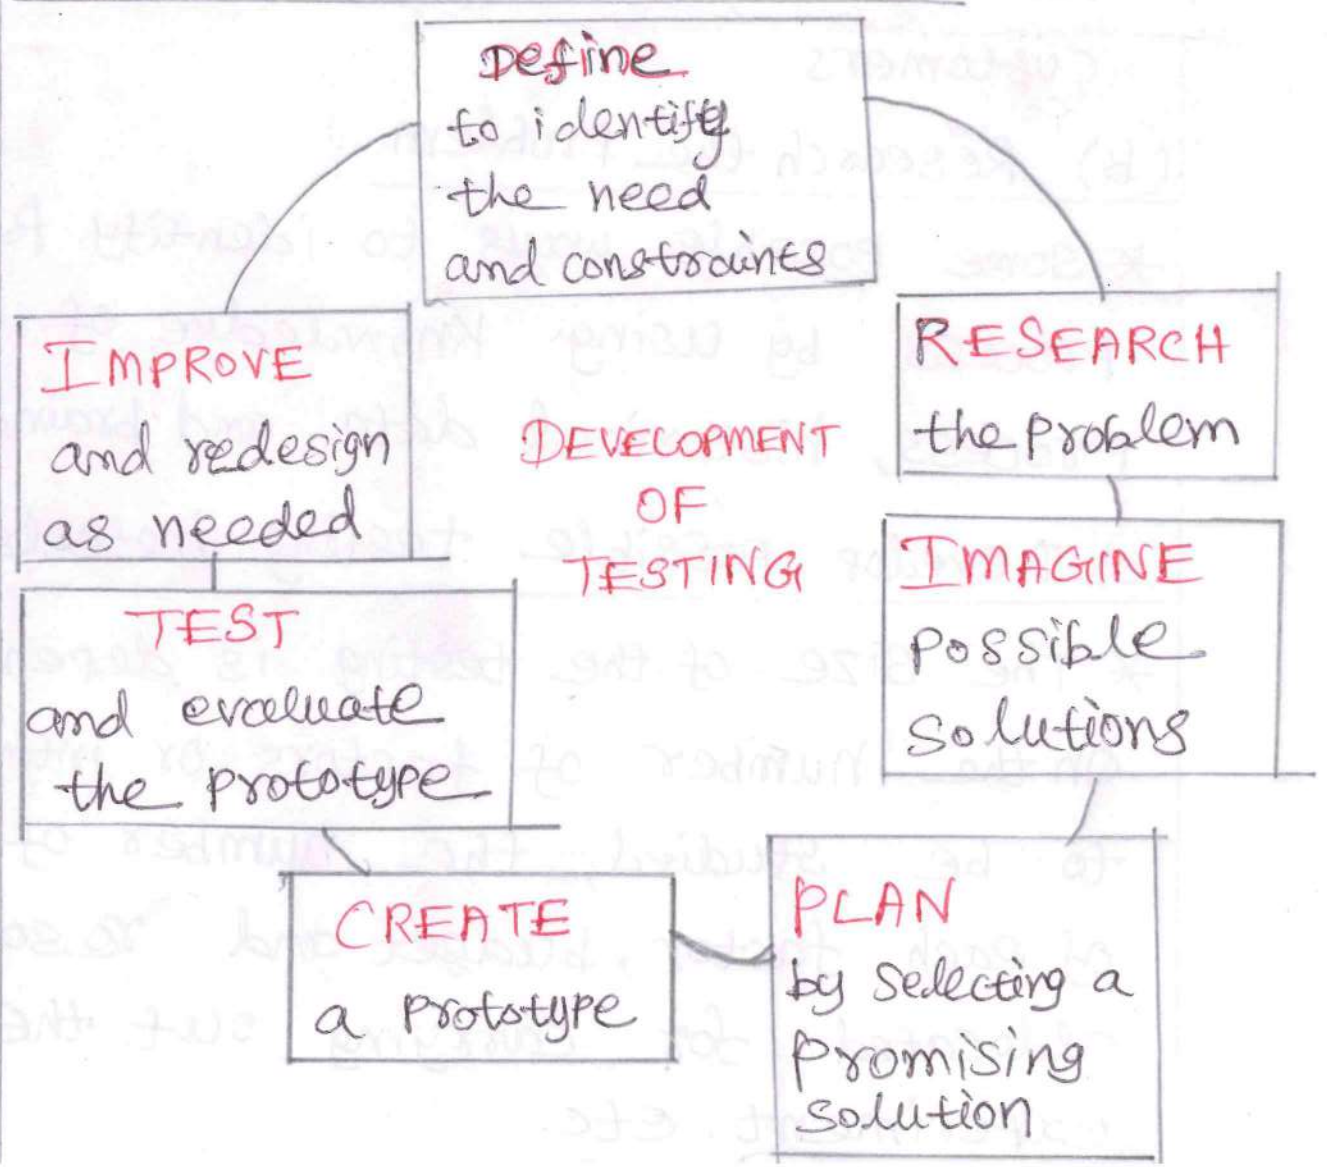 Define
to identify
the need
and constraints
RESEARCH
the problem
IMAGINE
possible
solutions
PLAN
by selecting a
promising
solution
CREATE
a prototype
TEST
and evaluate
the prototype
IMPROVE
and redesign
as needed
DEVELOPMENT
OF
TESTING